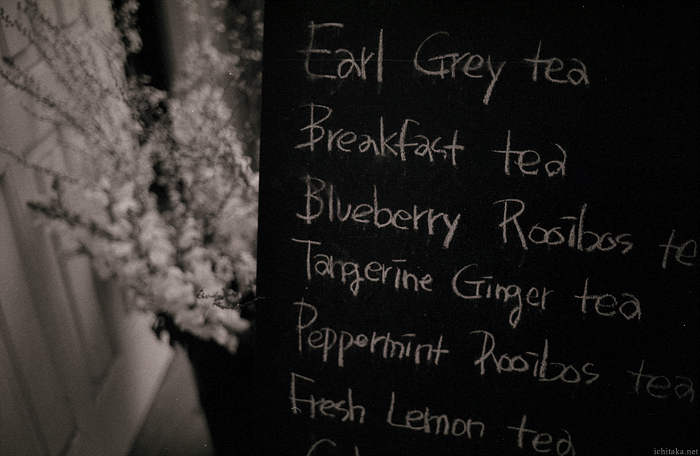 Earl Grey tea
Breakfast tea
Blueberry Rooibos te
Tangerine Ginger tea
Peppermint Rooibos tea
Fresh Lemon tea
ichitaka.net